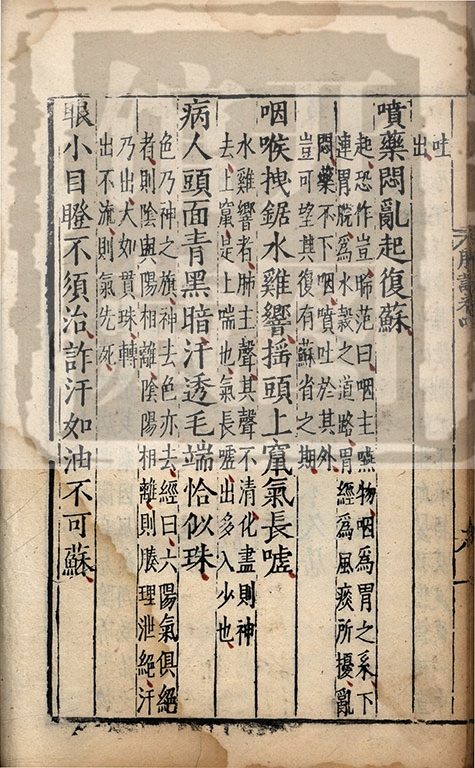 吐
出
噴藥悶亂起復蘇
起恐作豈晞范曰咽主嚥物咽爲胃之系下
連胃脘爲水穀之道路胃經爲風痰所擾亂
悶藥不下咽噴吐於其外
豈可望其復有蘇省之期
咽喉拽鋸水雞響搖頭上竄氣長噓
水雞響者肺主聲其聲不清化盡則神
去上竄是上喘也氣長噓出多入少也
病人頭面青黑暗汗透毛端恰似珠
色乃神之旗神去色亦去經曰六陽氣俱絕
者則陰與陽相離陰陽相離則腠理泄絕汗
乃出大如貫珠轉
出不流則氣先死
眼小目瞪不須治詐汗如油不可蘇